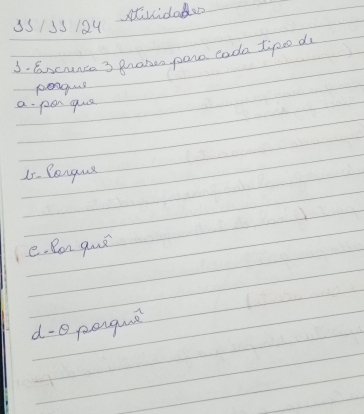 Atividades
11/11/24
1- Escreva 3 frases para cada tipo de
porque
a- por que
b- Porque
c- Por quê
d- O porquê